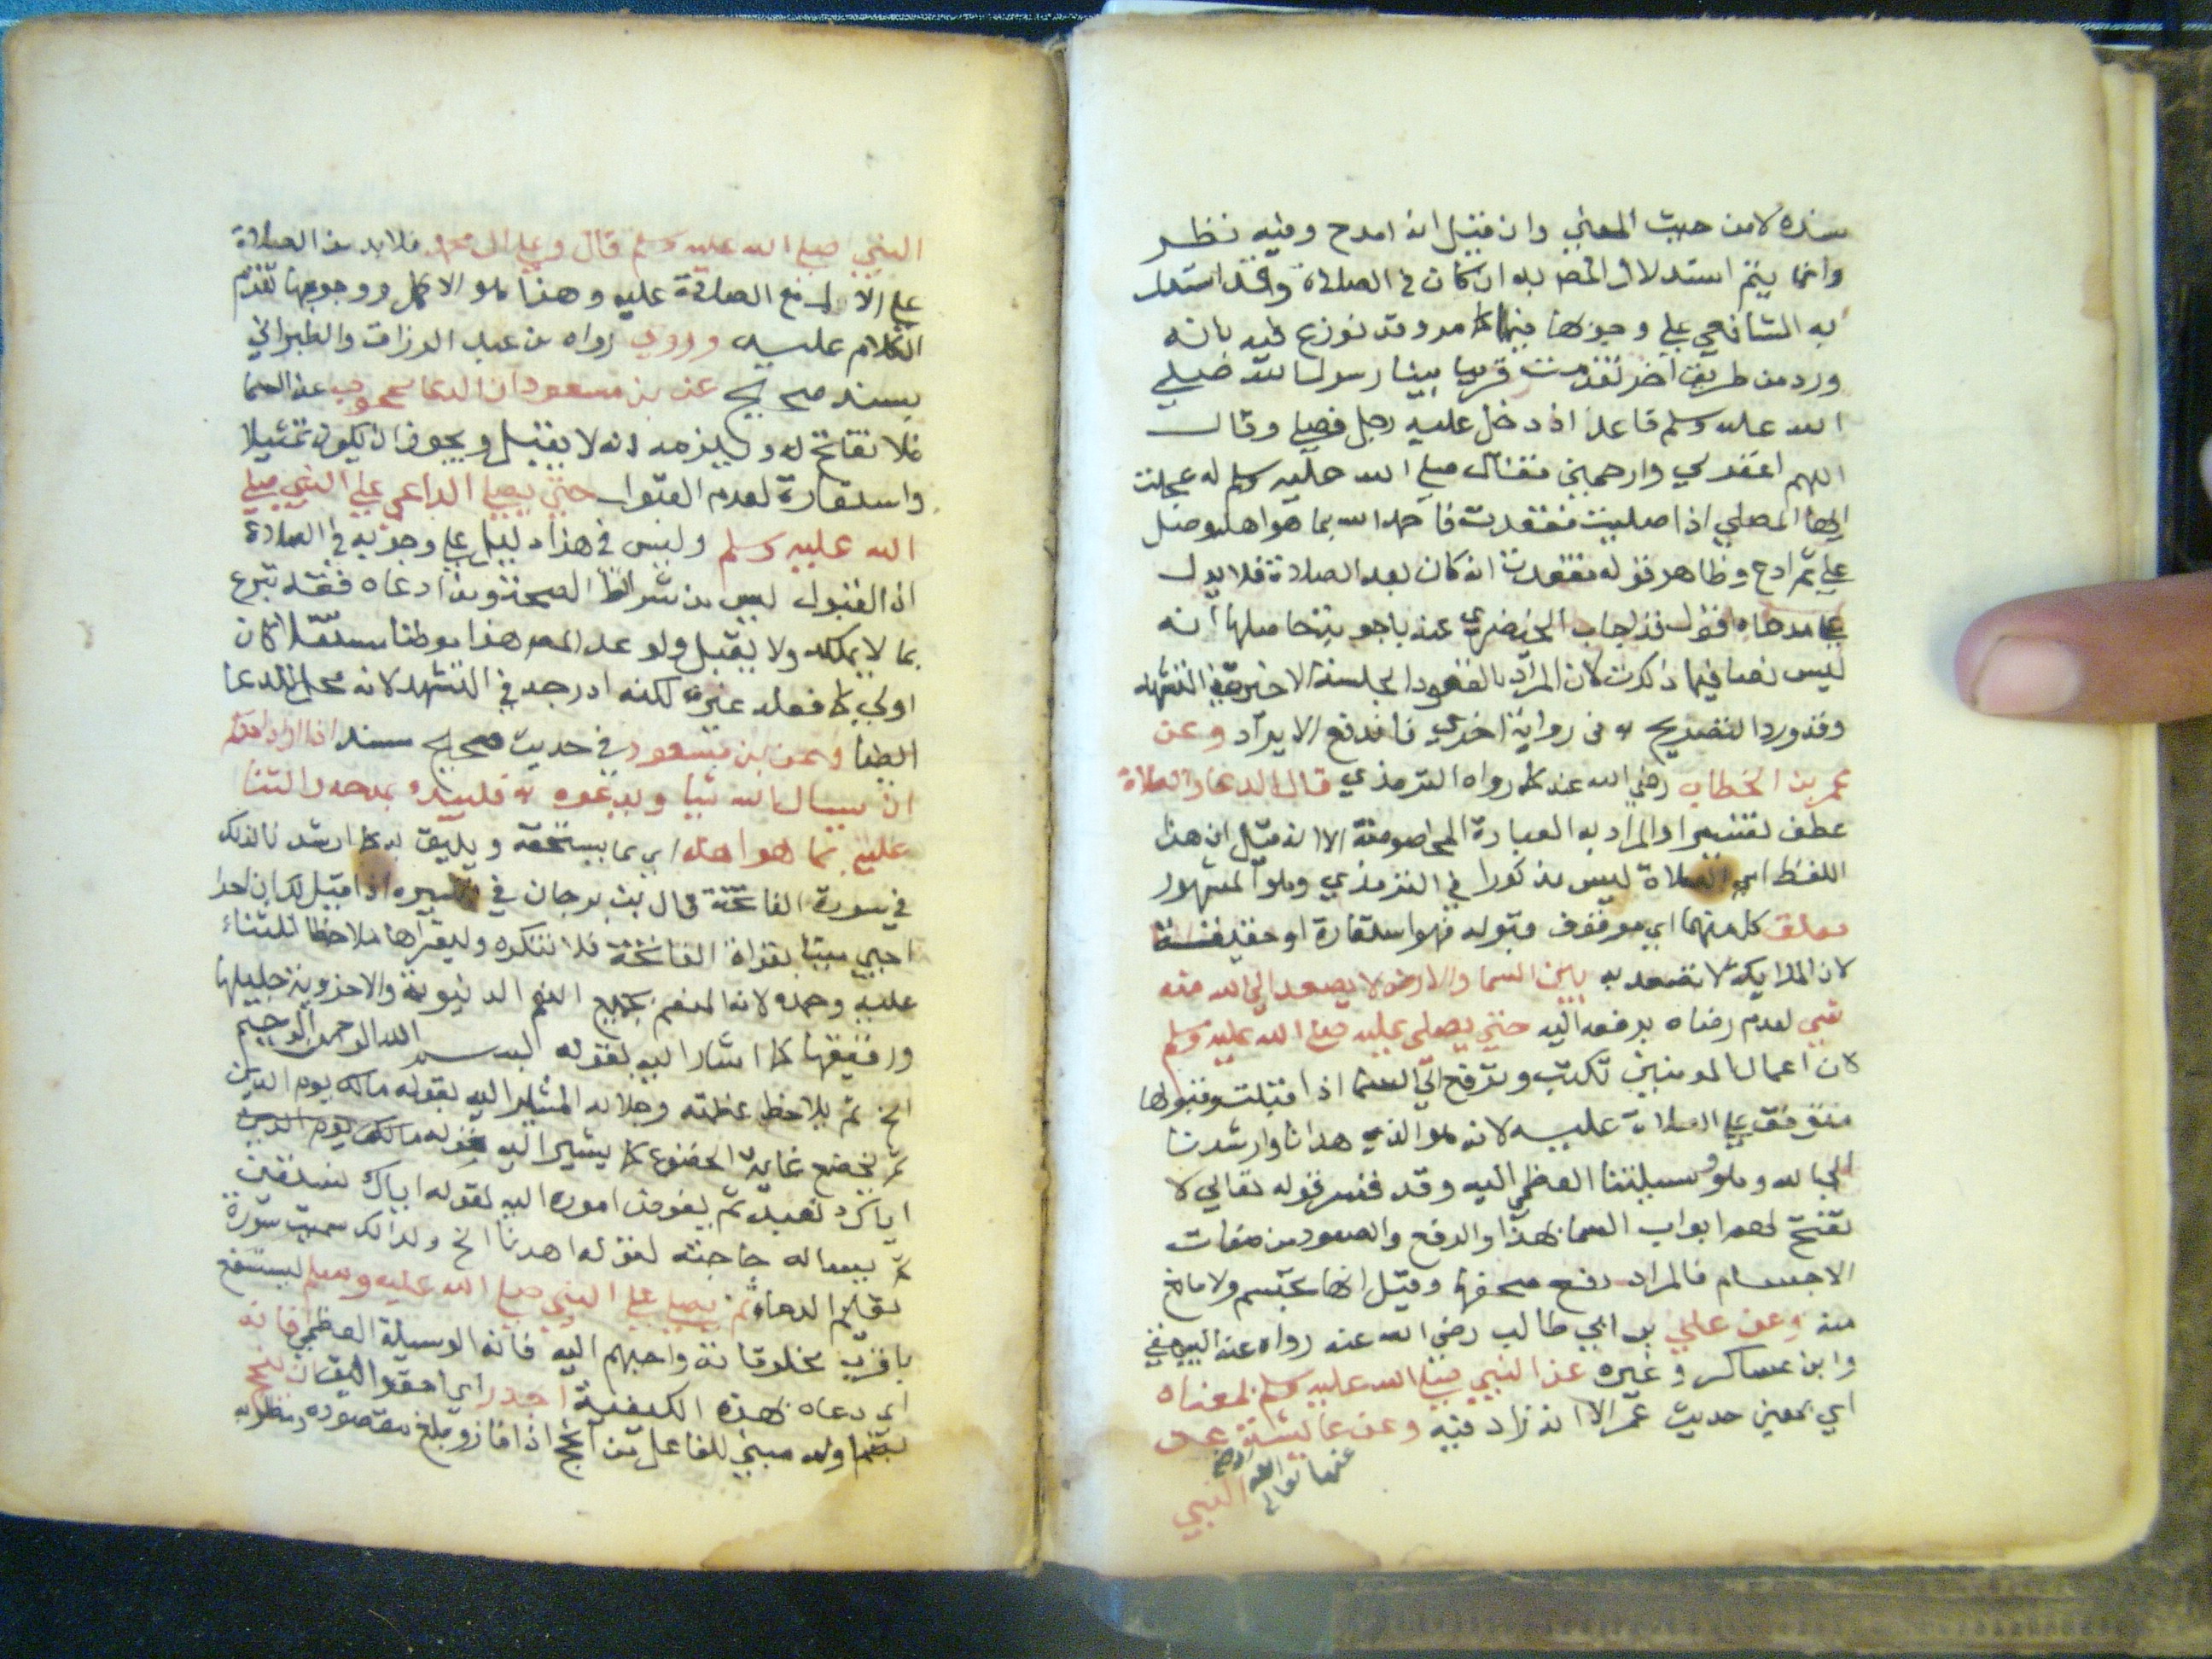 سنده لا من حيث المعني وان قيل انه امدح وفيه نظر
وانما يتم استدلال المص به ان كان في الصلاة وقد استدل
به الشافعي علي وجوبها فيها كما مر وقد نوزع فيه بانه
ورد من طريق اخر تقدمت قريبا بينا رسول الله صلي
الله عليه وسلم قاعد اذ دخل عليه رجل فصلي وقال
اللهم اغفرلي وارحمني فقال صلي الله عليه وسلم له عجلت
ايها المصلي اذا صليت فقعدت فاحمد الله بما هو اهله وصل
علي ثم ادع وظاهر قوله فقعدت انه كان بعد الصلاة فلا يدل
علي مدعاه اقول قد اجاب الخيضري عنه باجوبة حاصلها انه
ليس نصا فيما ذكرت لان المراد بالقعود الجلسة الاخيرة في التشهد
وقد ورد التصريح به في رواية اخري فاندفع الايراد وعن
عمر بن الخطاب رضي الله عنه كما رواه الترمذي قال الدعا والصلاة
عطف تفسير او المراد به العبادة المخصوصة الا انه قيل ان هذا
اللفظ اي الصلاة ليس مذكورا في الترمذي وهو المشهور
معلق كل منهما اي موقوف قبوله فهو استعارة او حقيقة
لان الملايكة لا تصعد به بين السما والارض لا يصعد الي الله منه
شي لعدم رضاه برفعه اليه حتي يصلي عليه صلي الله عليه وسلم
لان اعمال المومنين تكتب وترفع الي السما اذا قبلت وقبولها
متوقف علي الصلاة عليه لانه هو الذي هدانا وارشدنا
الي الله وهو وسيلتنا العظمي اليه وقد فسر قوله تعالي لا
تفتح لهم ابواب السما بهذا والرفع والصعود من صفات
الاجسام فالمراد رفع صحفها وقيل انها تجسم ولا مانع
منه وعن علي بن ابي طالب رضي الله عنه رواه عنه البيهقي
وابن عساكر وغيره عن النبي صلي الله عليه وسلم بمعناه
اي بمعني حديث عمر الا انه زاد فيه وعن عايشة عن
رضي الله تعالي عنها
النبي
النبي صلي الله عليه وسلم قال وعلي ال محمد فلا بد من الصلاة
علي الال مع الصلاة عليه وهذا هو الاكمل ووجوبها تقدم
الكلام عليه وروي رواه عن عبد الرزاق والطبراني
بسند صحيح عن بن مسعود ان الدعا محجوب عن السما
فلا تفتح له ويلزمه انه لا يقبل ويجوز ان يكون تمثيلا
واستعارة لعدم القبول حتي يصلي الداعي علي النبي صلي
الله عليه وسلم وليس في هذا دليل علي وجوبه في الصلاة
اذ القبول ليس من شرايط الصحة ومن ادعاه فقد تبرع
بما لا يملكه ولا يقبل ولو عد المص هذا موطنا مستقلا كان
اولي كما فعله غيره لكنه ادرجه في التشهد لانه محل للدعا
ايضا وعن بن مسعود في حديث صحيح سنده اذا اراد احدكم
ان يسال الله شيا ويدعوه به فليبدء بمدحه والثنا
عليه بما هو اهله اي بما يستحقه ويليق به كما ارشدنا لذلك
في سورة الفاتحة قال بن برجان في تفسيره اذا قيل لك ان احدا
احيي ميتا بقراة الفاتحة فلا تنكره وليقراها ملاحظا للثناء
عليه وحمده لانه المنعم بجميع النعم الدنيوية والاخروية جليلها
ودقيقها كما اشار اليه بقوله بسم الله الرحمن الرحيم
الخ ثم يلاحظ عظمته وجلاله المشار اليه بقوله مالك يوم الدين
ثم يخضع غاية الخضوع كما يشير اليه بقوله مالك يوم الدين
اياك نعبد ثم يفوض اموره اليه بقوله اياك نستعين
ثم يساله حاجته لقوله اهدنا الخ ولذلك سميت سورة
تعليم الدعاء ثم يصلي علي النبي صلي الله عليه وسلم ليستشفع
باقرب مخلوقاته واحبهم اليه فانه الوسيلة العظمي فانه
اي دعاه بهذه الكيفية اجدر اي احق واليق ان ينجح
بفتح اوله مبني للفاعل من انجح اذا فاز وبلغ مقصوده ومطلوبه